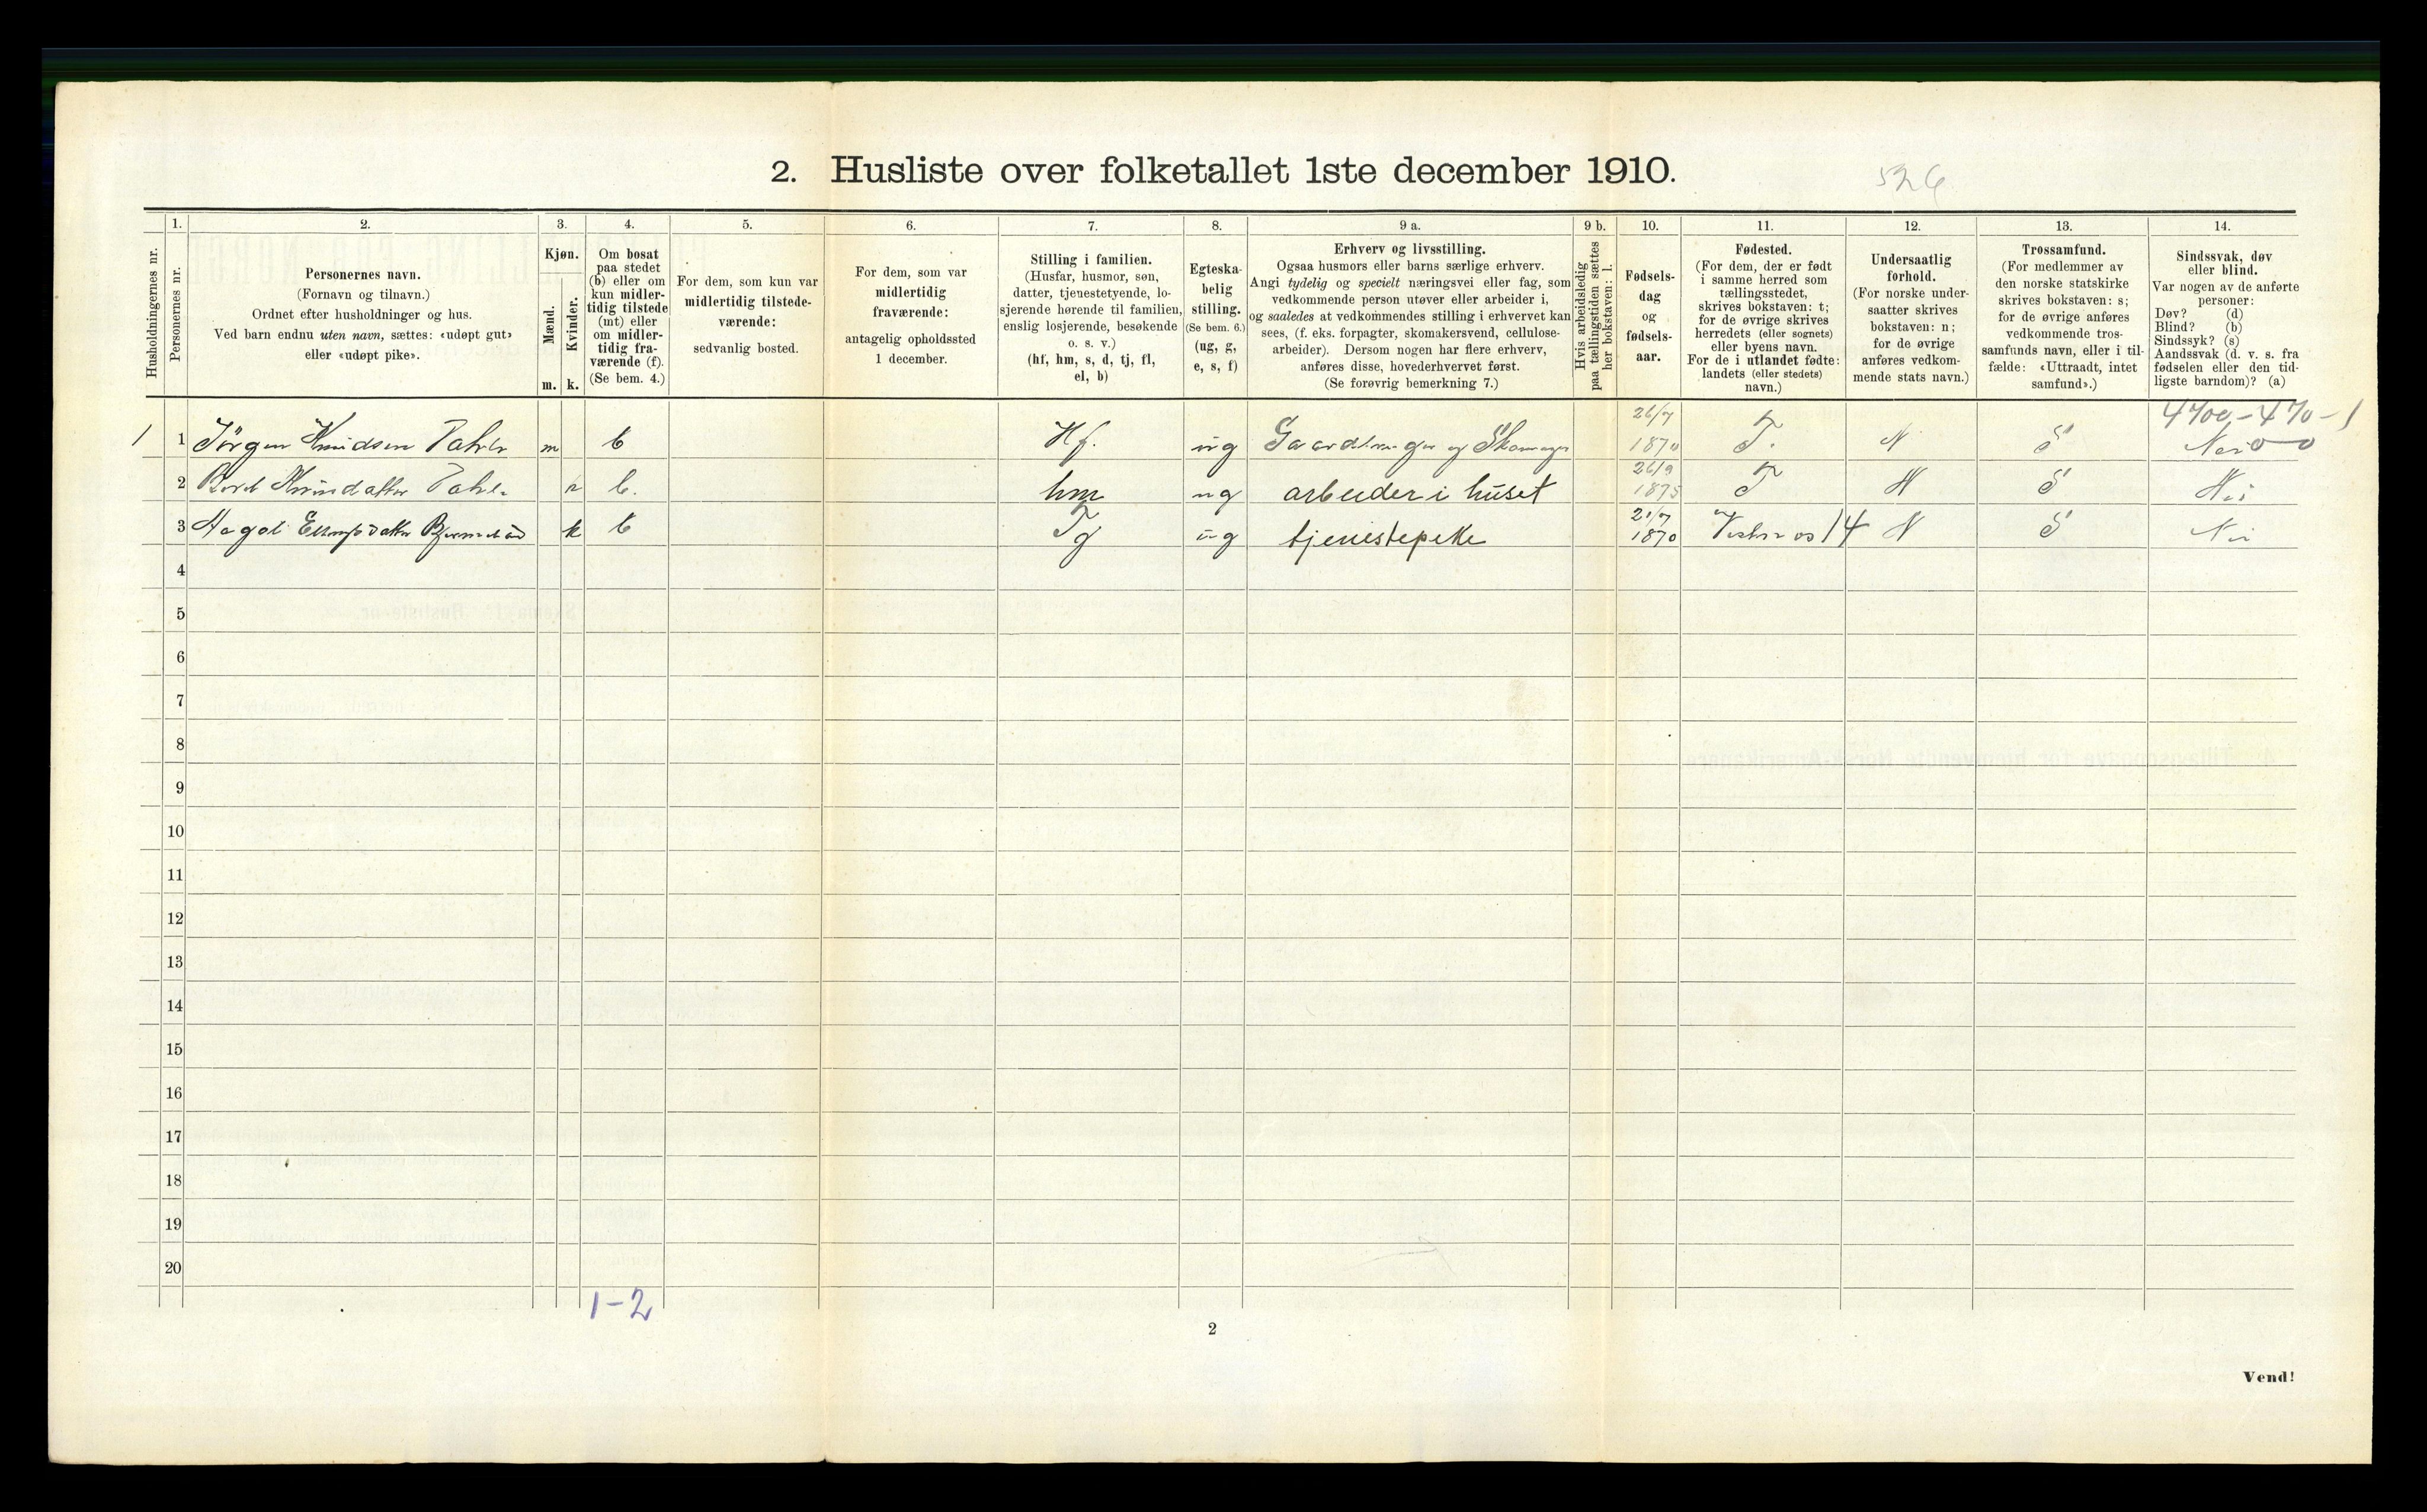 2. Husliste over folketallet 1ste december 1910.
526
Husholdningernes nr.
1.
Personernes nr.
2.
Personernes navn.
(Fornavn og tilnavn.)
Ordnet efter husholdninger og hus.
Ved barn endnu uten navn, sættes: «udøpt gut»
eller «udøpt pike».
3.
Kjøn.
Mænd.
m.
Kvinder.
k.
4.
Om bosat
paa stedet
(b) eller om
kun midler-
tidig tilstede
(mt) eller
om midler-
tidig fra-
værende (f).
(Se bem. 4.)
5.
For dem, som kun var
midlertidig tilstede-
værende:
sedvanlig bosted.
6.
For dem, som var
midlertidig
fraværende:
antagelig opholdssted
1 december.
7.
Stilling i familien.
(Husfar, husmor, søn,
datter, tjenestetyende, lo-
sjerende hørende til familien,
enslig losjerende, besøkende
o. s. v.)
(hf, hm, s, d, tj, fl,
el, b)
8.
Egteska-
belig
stilling.
(Se bem. 6.)
(ug, g,
e, s, f)
9 a.
Erhverv og livsstilling.
Ogsaa husmors eller barns særlige erhverv.
Angi tydelig og specielt næringsvei eller fag, som
vedkommende person utøver eller arbeider i,
og saaledes at vedkommendes stilling i erhvervet kan
sees, (f. eks. forpagter, skomakersvend, cellulose-
arbeider). Dersom nogen har flere erhverv,
anføres disse, hovederhvervet først.
(Se forøvrig bemerkning 7.)
9 b.
Hvis arbeidsledig
paa tællingstiden sættes
her bokstaven: l.
10.
Fødsels-
dag
og
fødsels-
aar.
11.
Fødested.
(For dem, der er født
i samme herred som
tællingsstedet,
skrives bokstaven: t;
for de øvrige skrives
herredets (eller sognets)
eller byens navn.
For de i utlandet fødte:
landets (eller stedets)
navn.)
12.
Undersaatlig
forhold.
(For norske under-
saatter skrives
bokstaven: n;
for de øvrige
anføres vedkom-
mende stats navn.)
13.
Trossamfund.
(For medlemmer av
den norske statskirke
skrives bokstaven: s;
for de øvrige anføres
vedkommende tros-
samfunds navn, eller i til-
fælde: «Uttraadt, intet
samfund».)
14.
Sindssvak, døv
eller blind.
Var nogen av de anførte
personer:
Døv? (d)
Blind? (b)
Sindssyk? (s)
Aandssvak (d. v. s. fra
fødselen eller den tid-
ligste barndom)? (a)
4700-470-1
1 1 Jörgen Knudsen m b Hf. ug og 26/7 1870 T. N S Nei 0 0
2 k b. hm ug arbeider i huset 26/9 1875 T N S Nei
3 k b Tg ug tjenistepeke 21/7 1870 14 N S Nei
4
5
6
7
8
9
10
11
12
13
14
15
16
17
18
19
20
1-2
2
Vend!